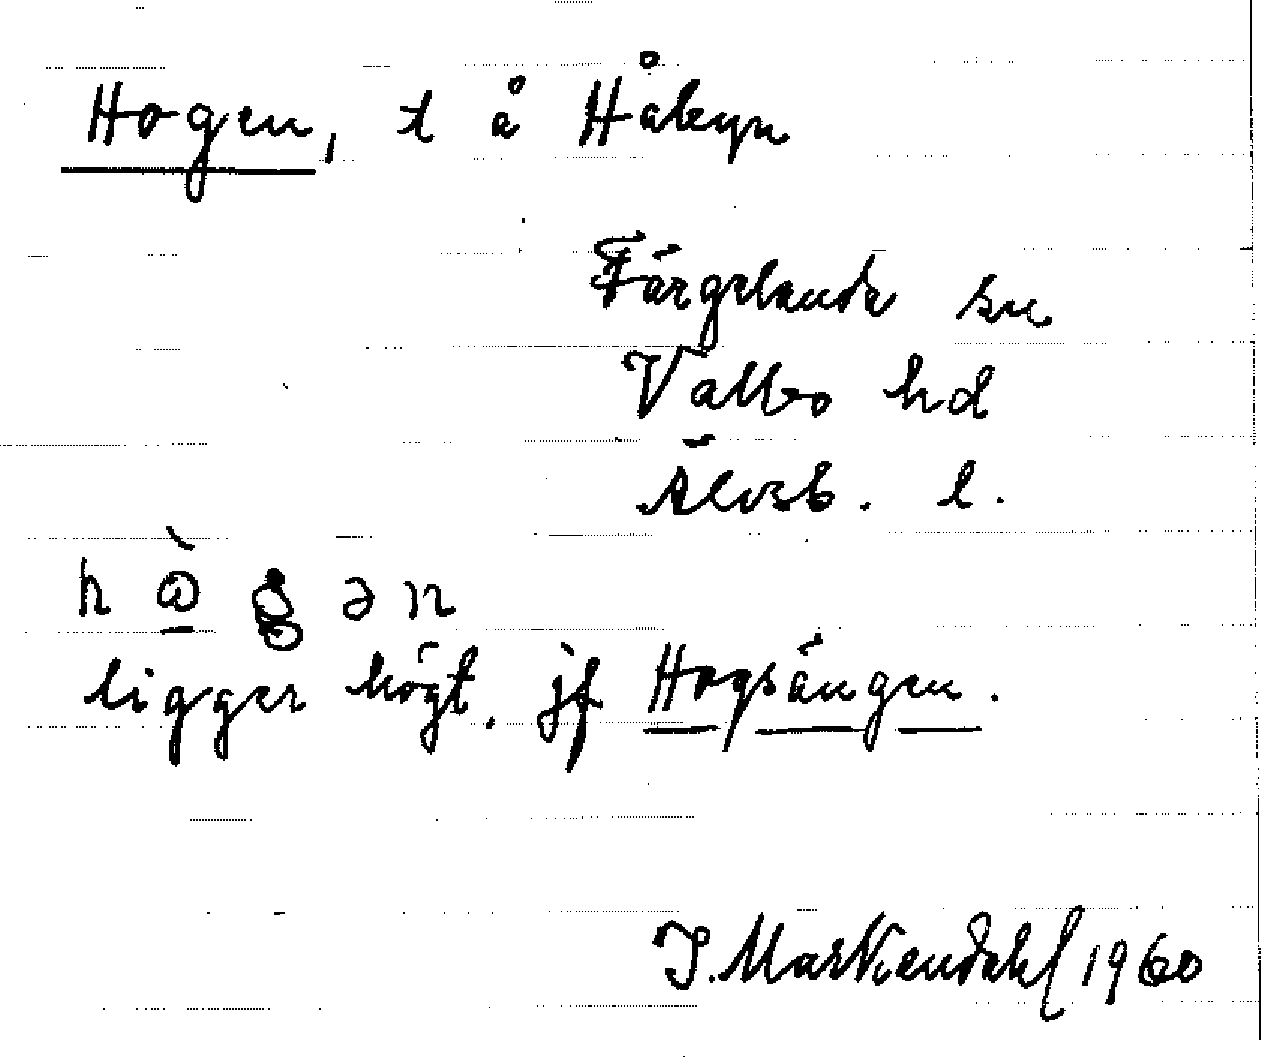 Hogen, t å Håbyn
Färgelanda sn
Valbo hd
Älvsb. l.
ligger högt. jf Hogsängen.
J. Markendahl 1960